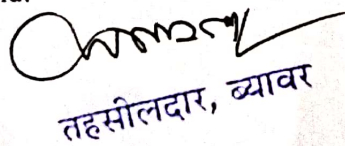 तहसीलदार, ब्यावर